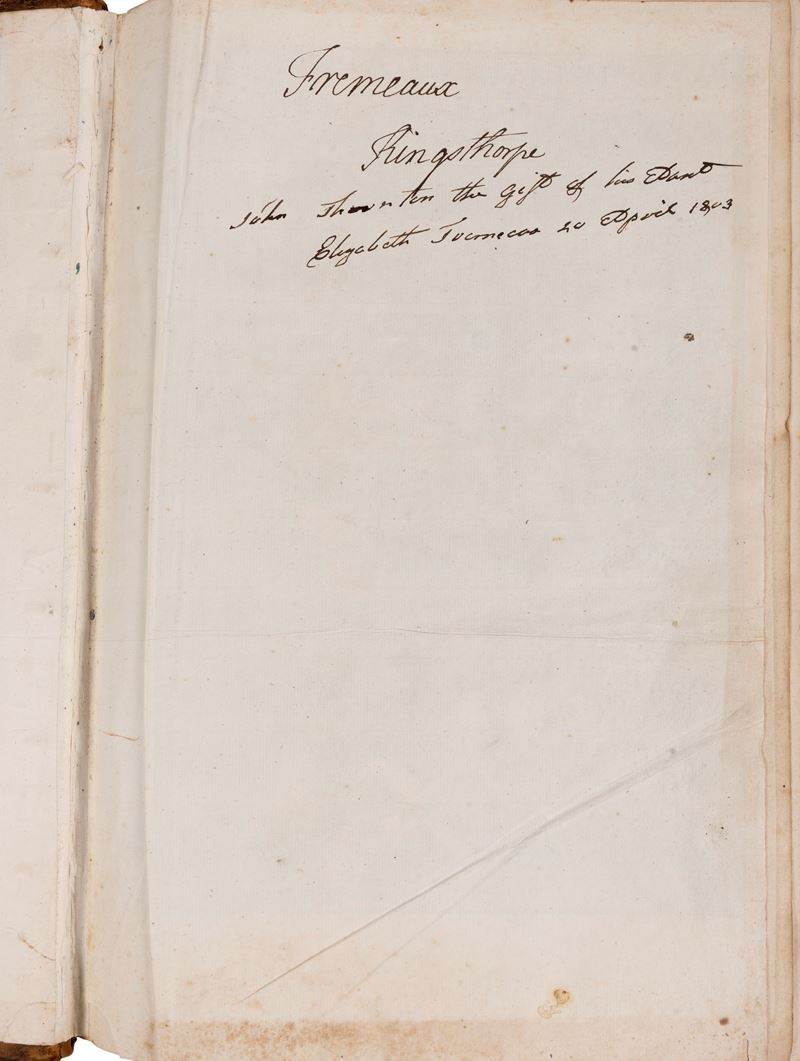 Fremeaux
Kingsthorpe
John Thornton the gift of his Aunt
Elizabeth Fremeaux 20 April 1803